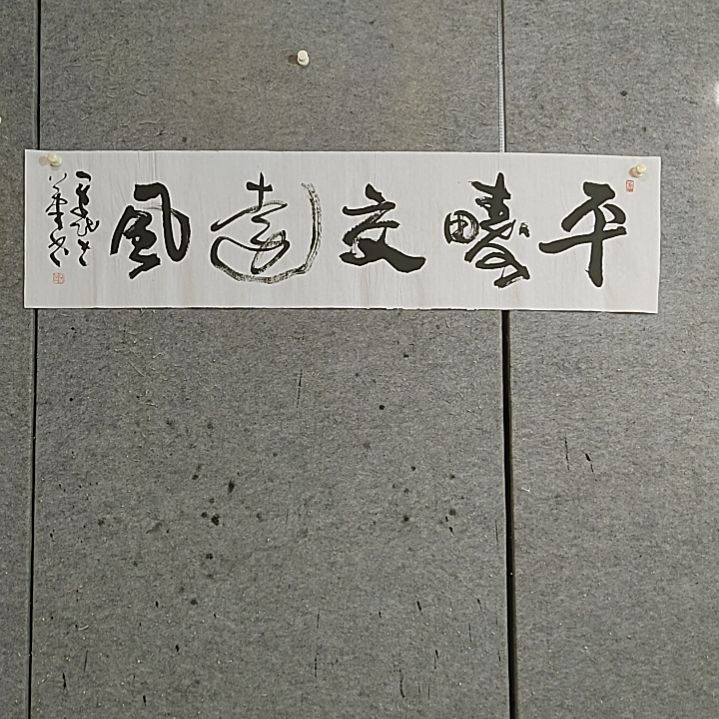 平疇交遠風